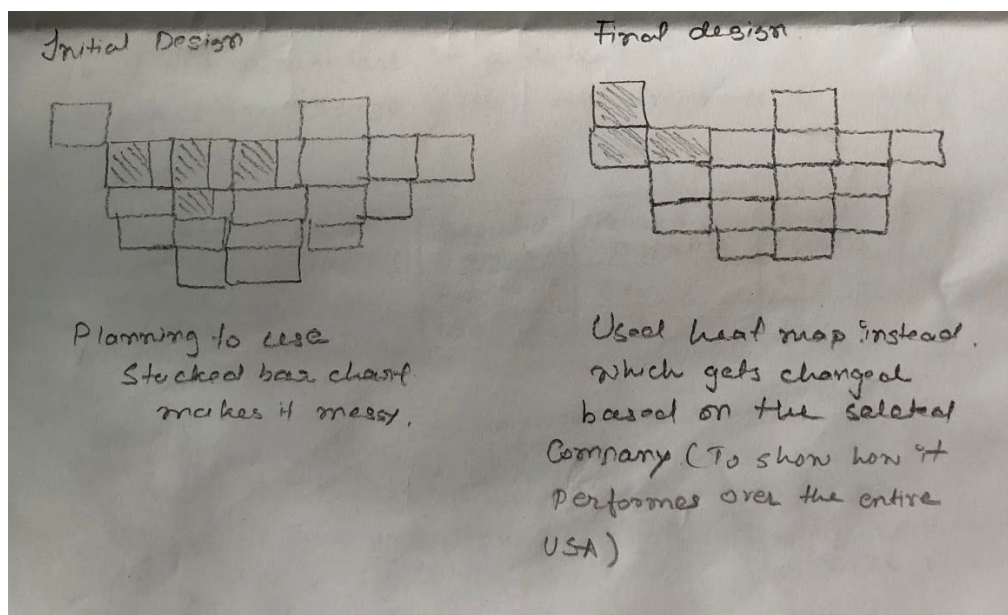 Initial Design
Planning to use
Stacked bar chart
makes it messy.
Final design
Used heat map instead.
which gets changed
based on the selated
Company (To show how it
Performes over the entire
USA)